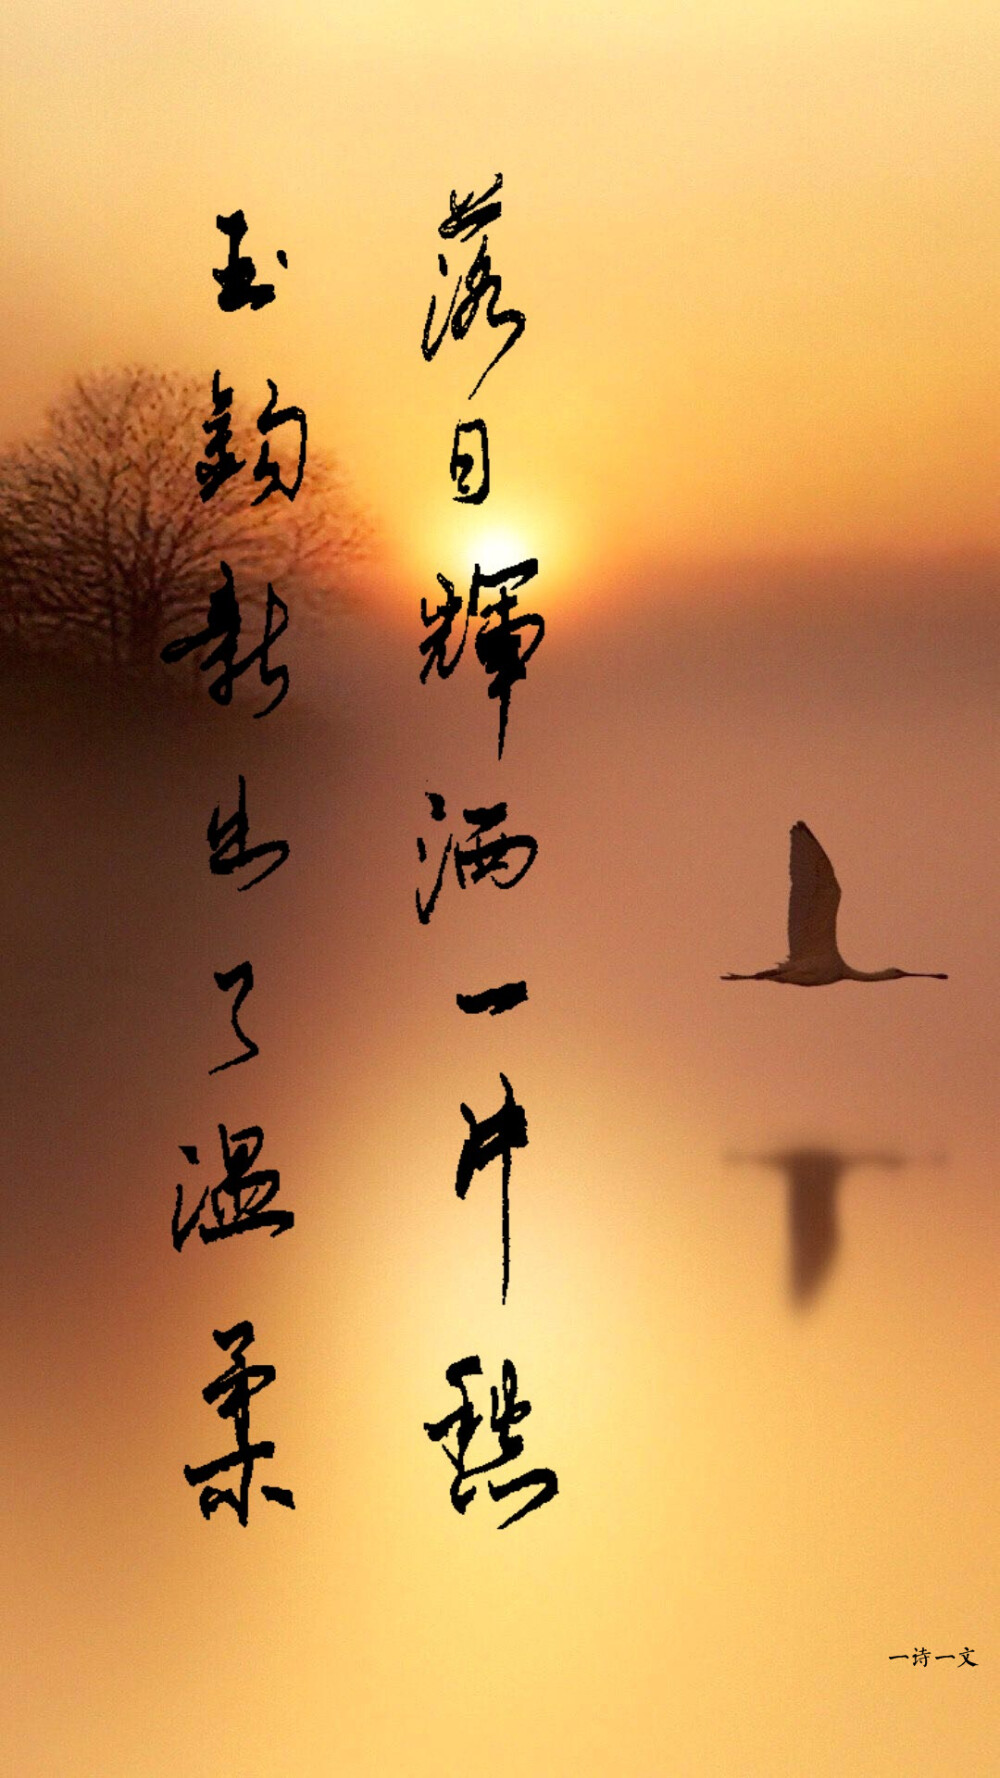 落日輝洒一片愁
玉鈎新出了温柔
一诗一文